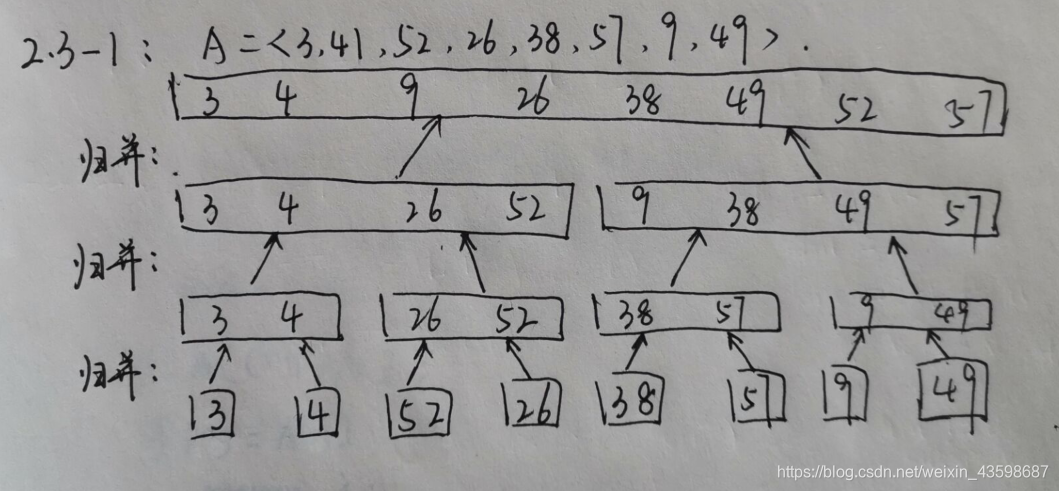 2.3-1: A = <3,41,52,26,38,57,9,49>.
3 4 9 26 38 49 52 57
归并:
3 4 26 52 9 38 49 57
归并:
3 4 26 52 38 57 9 49
归并:
3 4 52 26 38 57 9 49
https://blog.csdn.net/weixin_43598687